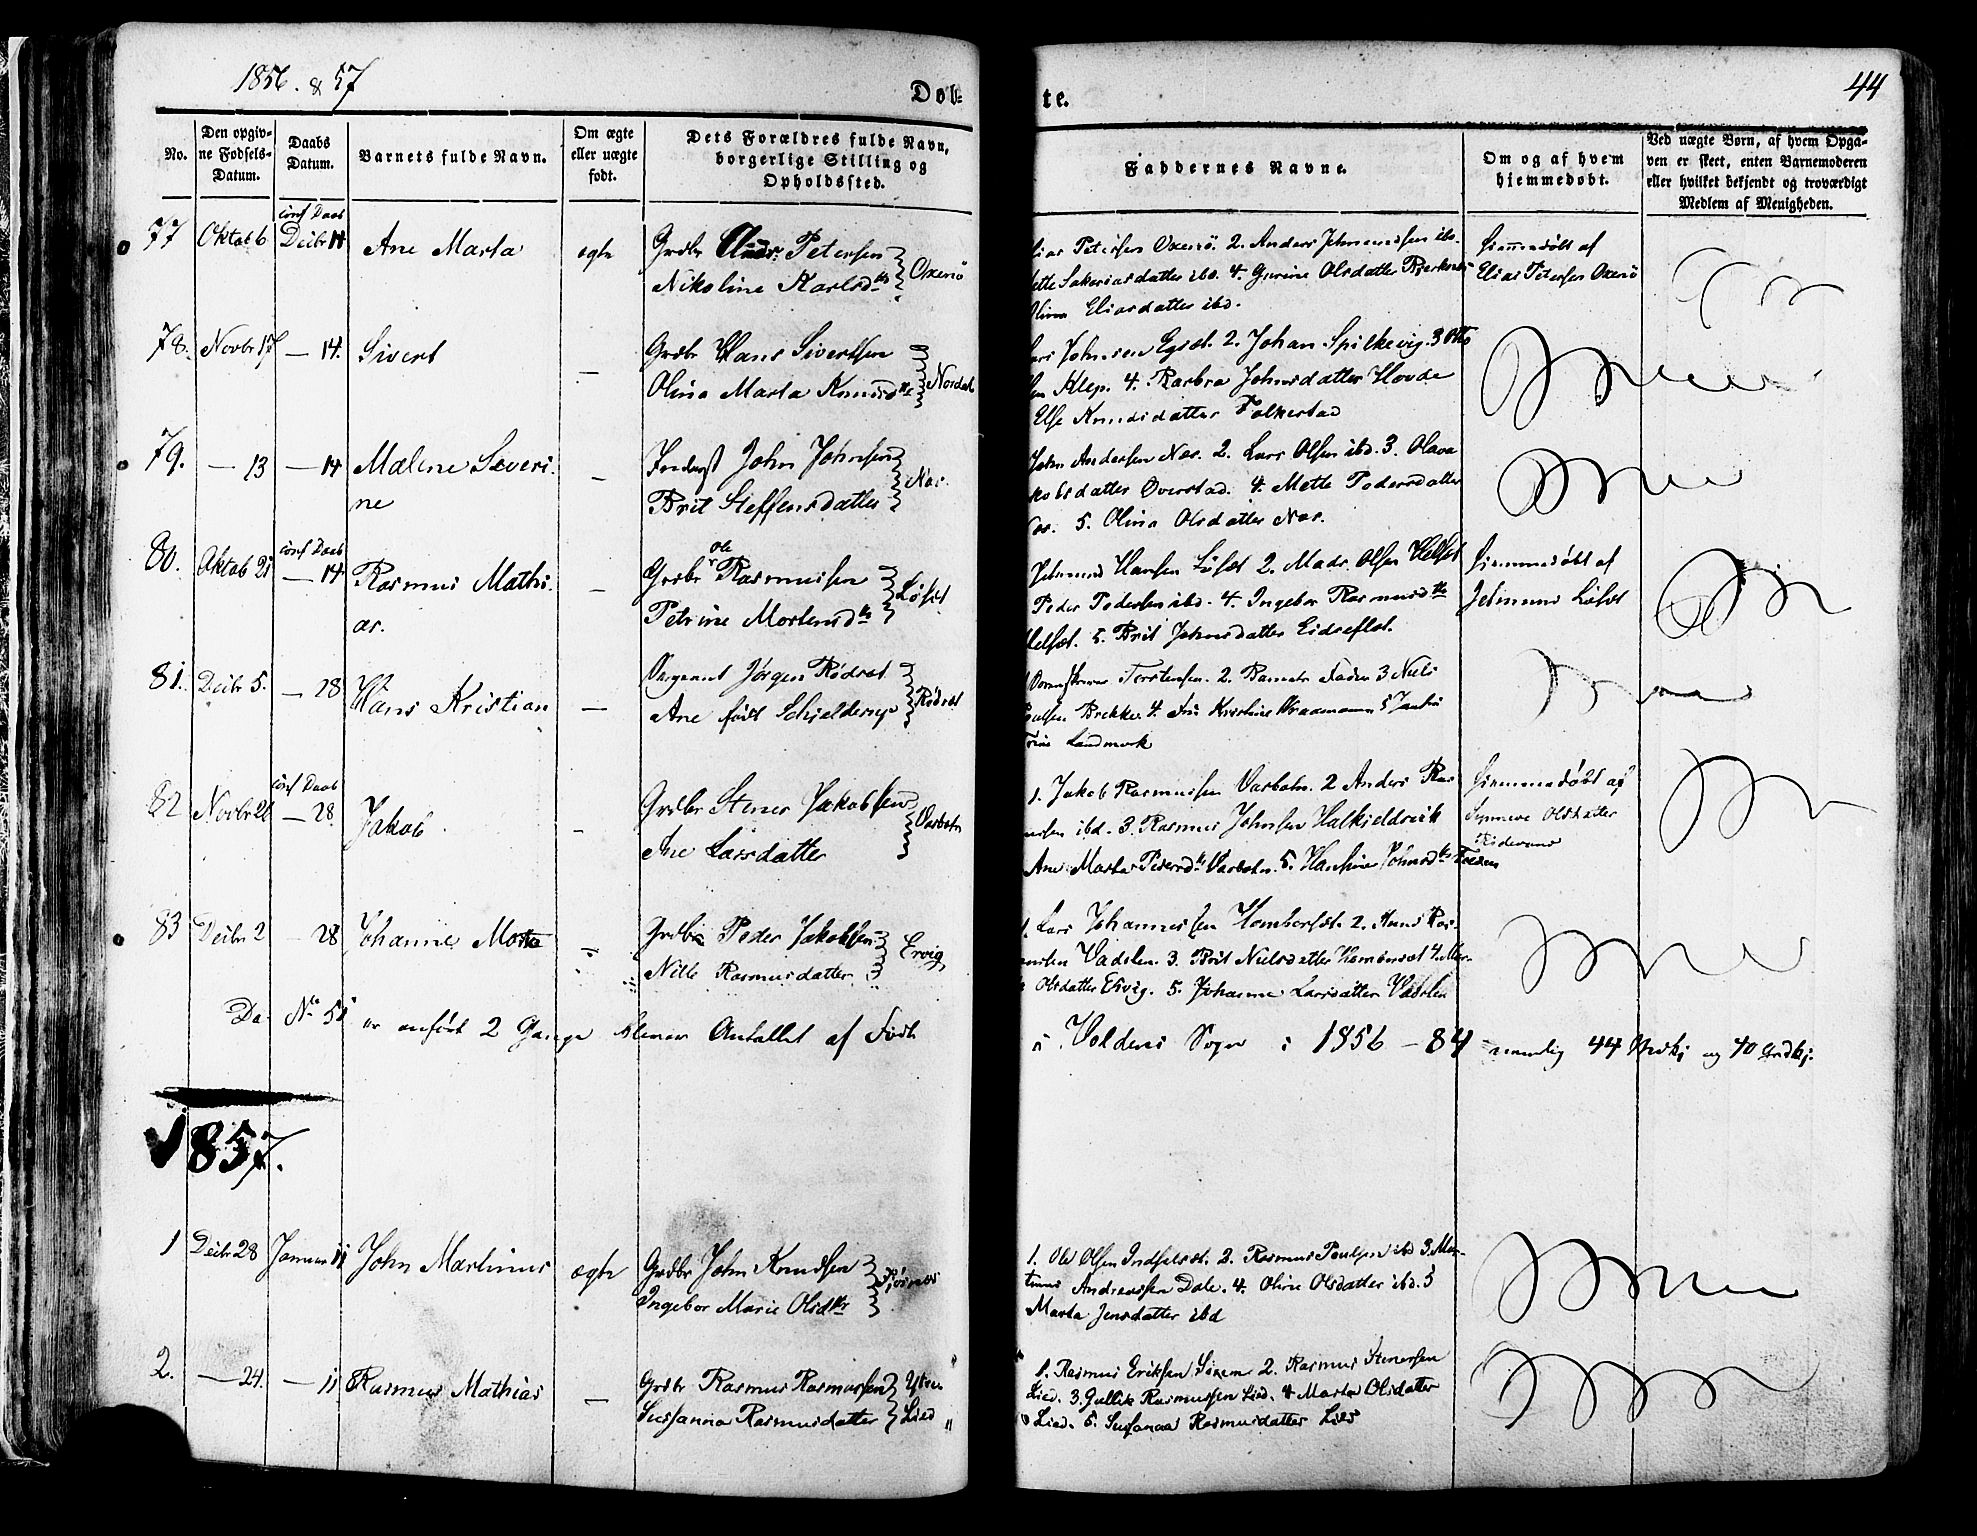 1856. & 57
Døb-
te.
44
No.
Den opgiv-
ne Fødsels-
Datum.
Daabs
Datum.
Barnets fulde Navn.
Om ægte
eller uægte
født.
Dets Forældres fulde Navn,
borgerlige Stilling og
Opholdssted.
Faddernes Navne.
Om og af hvem
hjemmedøbt.
Ved uægte Børn, af hvem Opga-
ven er skeet, enten Barnemoderen
eller hvilket bekjendt og troværdigt
Medlem af Menigheden.
conf Daab
77 Oktob 6 Decbr 14 Ane Marta ægte Grdbr Petersen
Nikoline Karlsdtr Oxenö
Petersen Oxenö. 2. Anders ibd.
Sakariasdatter ibd. 4. Gurine Olsdatter
Eliasdatter ibd.
Hjemmedöbt af
Elias Petersen Oxenö
78. Novbr 17 — 14. Sivert — Grdbr Hans Sivertsen
Olina Marta Knudsdtr
Johnsen Egset. 2. Johan Spilkevig. 3 Otto
Klep. 4. Barbra Johnsdatter Hovde
Else Knudsdatter Folkestad
79. — 13 — 14 Malene Severi-
ne
— Inderst John Johnsen
Brit Steffensdatter Nar.
John Andersen Nar. 2. Lars Olsen ibd. 3. Olava
datter Överstad. 4. Mette Pedersdatter
5. Olina Olsdatter Nar.
conf Daab
80. Oktob 21 — 14 Rasmus Mathi-
as.
— Grdbr Ole Rasmussen
Petrine Mortensdtr Löset
Jetmund Hansen Löset 2. Mads Olsen Helset
Peder Pedersen ibd. 4. Ingebor Rasmusdtr
Helset. 5. Brit Johnsdatter Eidseflot.
Hjemmedöbt af
Jetmund Löset
81. Decbr 5. — 28 Hans Kristian — Sergeant Jörgen Rödset
Ane födt Schjelderup Rödset
Torstensen. 2. 3 Niels
Brekke. 4. Fru Kristine 5 Jomfru
Trine Landmark
conf Daab
82 Novbr 26 — 28. Jakob — Grdbr Stener Jakobsen
Ane Larsdatter Varbotn
1. Jakob Rasmussen Varbotn. 2 Anders Ras-
mussen ibd. 3. Rasmus Johnsen Halkjeldsvik
Ane Marta Pedersdtr Varbotn. 5. Hansine Johnsdtr
Hjemmedöbt af
Synneve Olsdatter
83 Decbr 2 — 28 Johanne Marta — Grdbr Peder Jakobsen
Nille Rasmusdatter Ervig
1. Lars Johannessen Homborset. 2. Knud Ras-
mussen Vadsten. 3. Brit Nielsdatter Homborset 4. Mar-
Olsdatter Ervig. 5. Johanne Larsdatter
Da No 51 er anfört 2 Gange bliver Antallet af Födte
i Voldens Sogn i 1856 — 84 nemlig 44 og 40
1857.
1 Decbr 28 Januar 11 John Martinus ægte Grdbr John Knudsen
Ingebor Marie Olsdtr
1. Ole Olsen Indselset. 2. Rasmus Poulsen ibd 3. Mar-
tinus Andreassen Dale. 4. Oline Olsdatter ibd. 5
Marta Jensdatter ibd
2. — 24. — 11 Rasmus Mathias — Grdbr Rasmus Rasmussen
Susanna Rasmusdatter Ytre Lied
1. Rasmus Eriksen 2. Rasmus Stenersen
Lied. 3. Gullik Rasmussen Lied. 4 Marta Olsdatter
Lied. 5. Susanna Rasmusdatter Lied